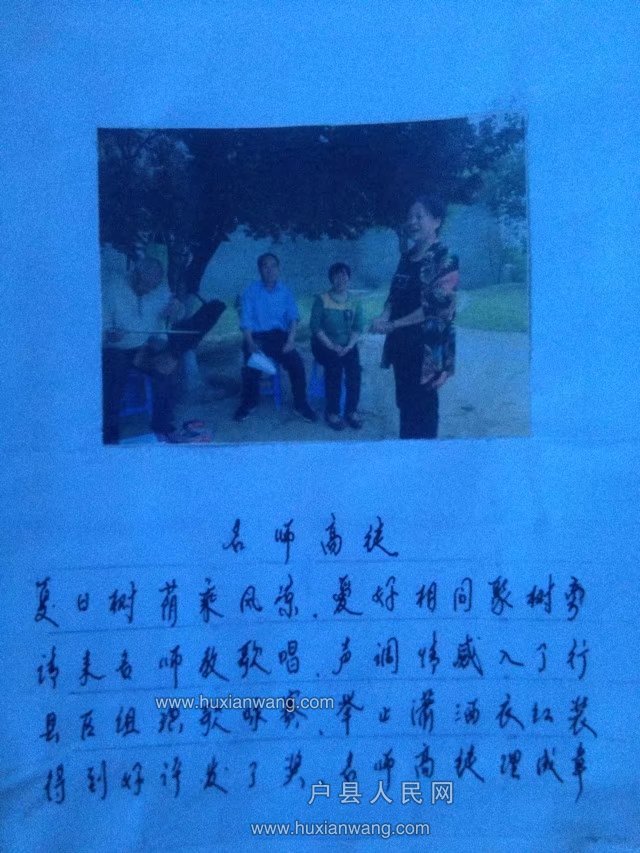 名师高徒
夏日树荫乘风凉、爱好相同聚树旁
请来名师教歌唱、声调情感入了行
县区组织歌咏赛、举止潇洒衣红装
得到好评发了奖、名师高徒理成章
www.huxianwang.com
户县人民网
www.huxianwang.com